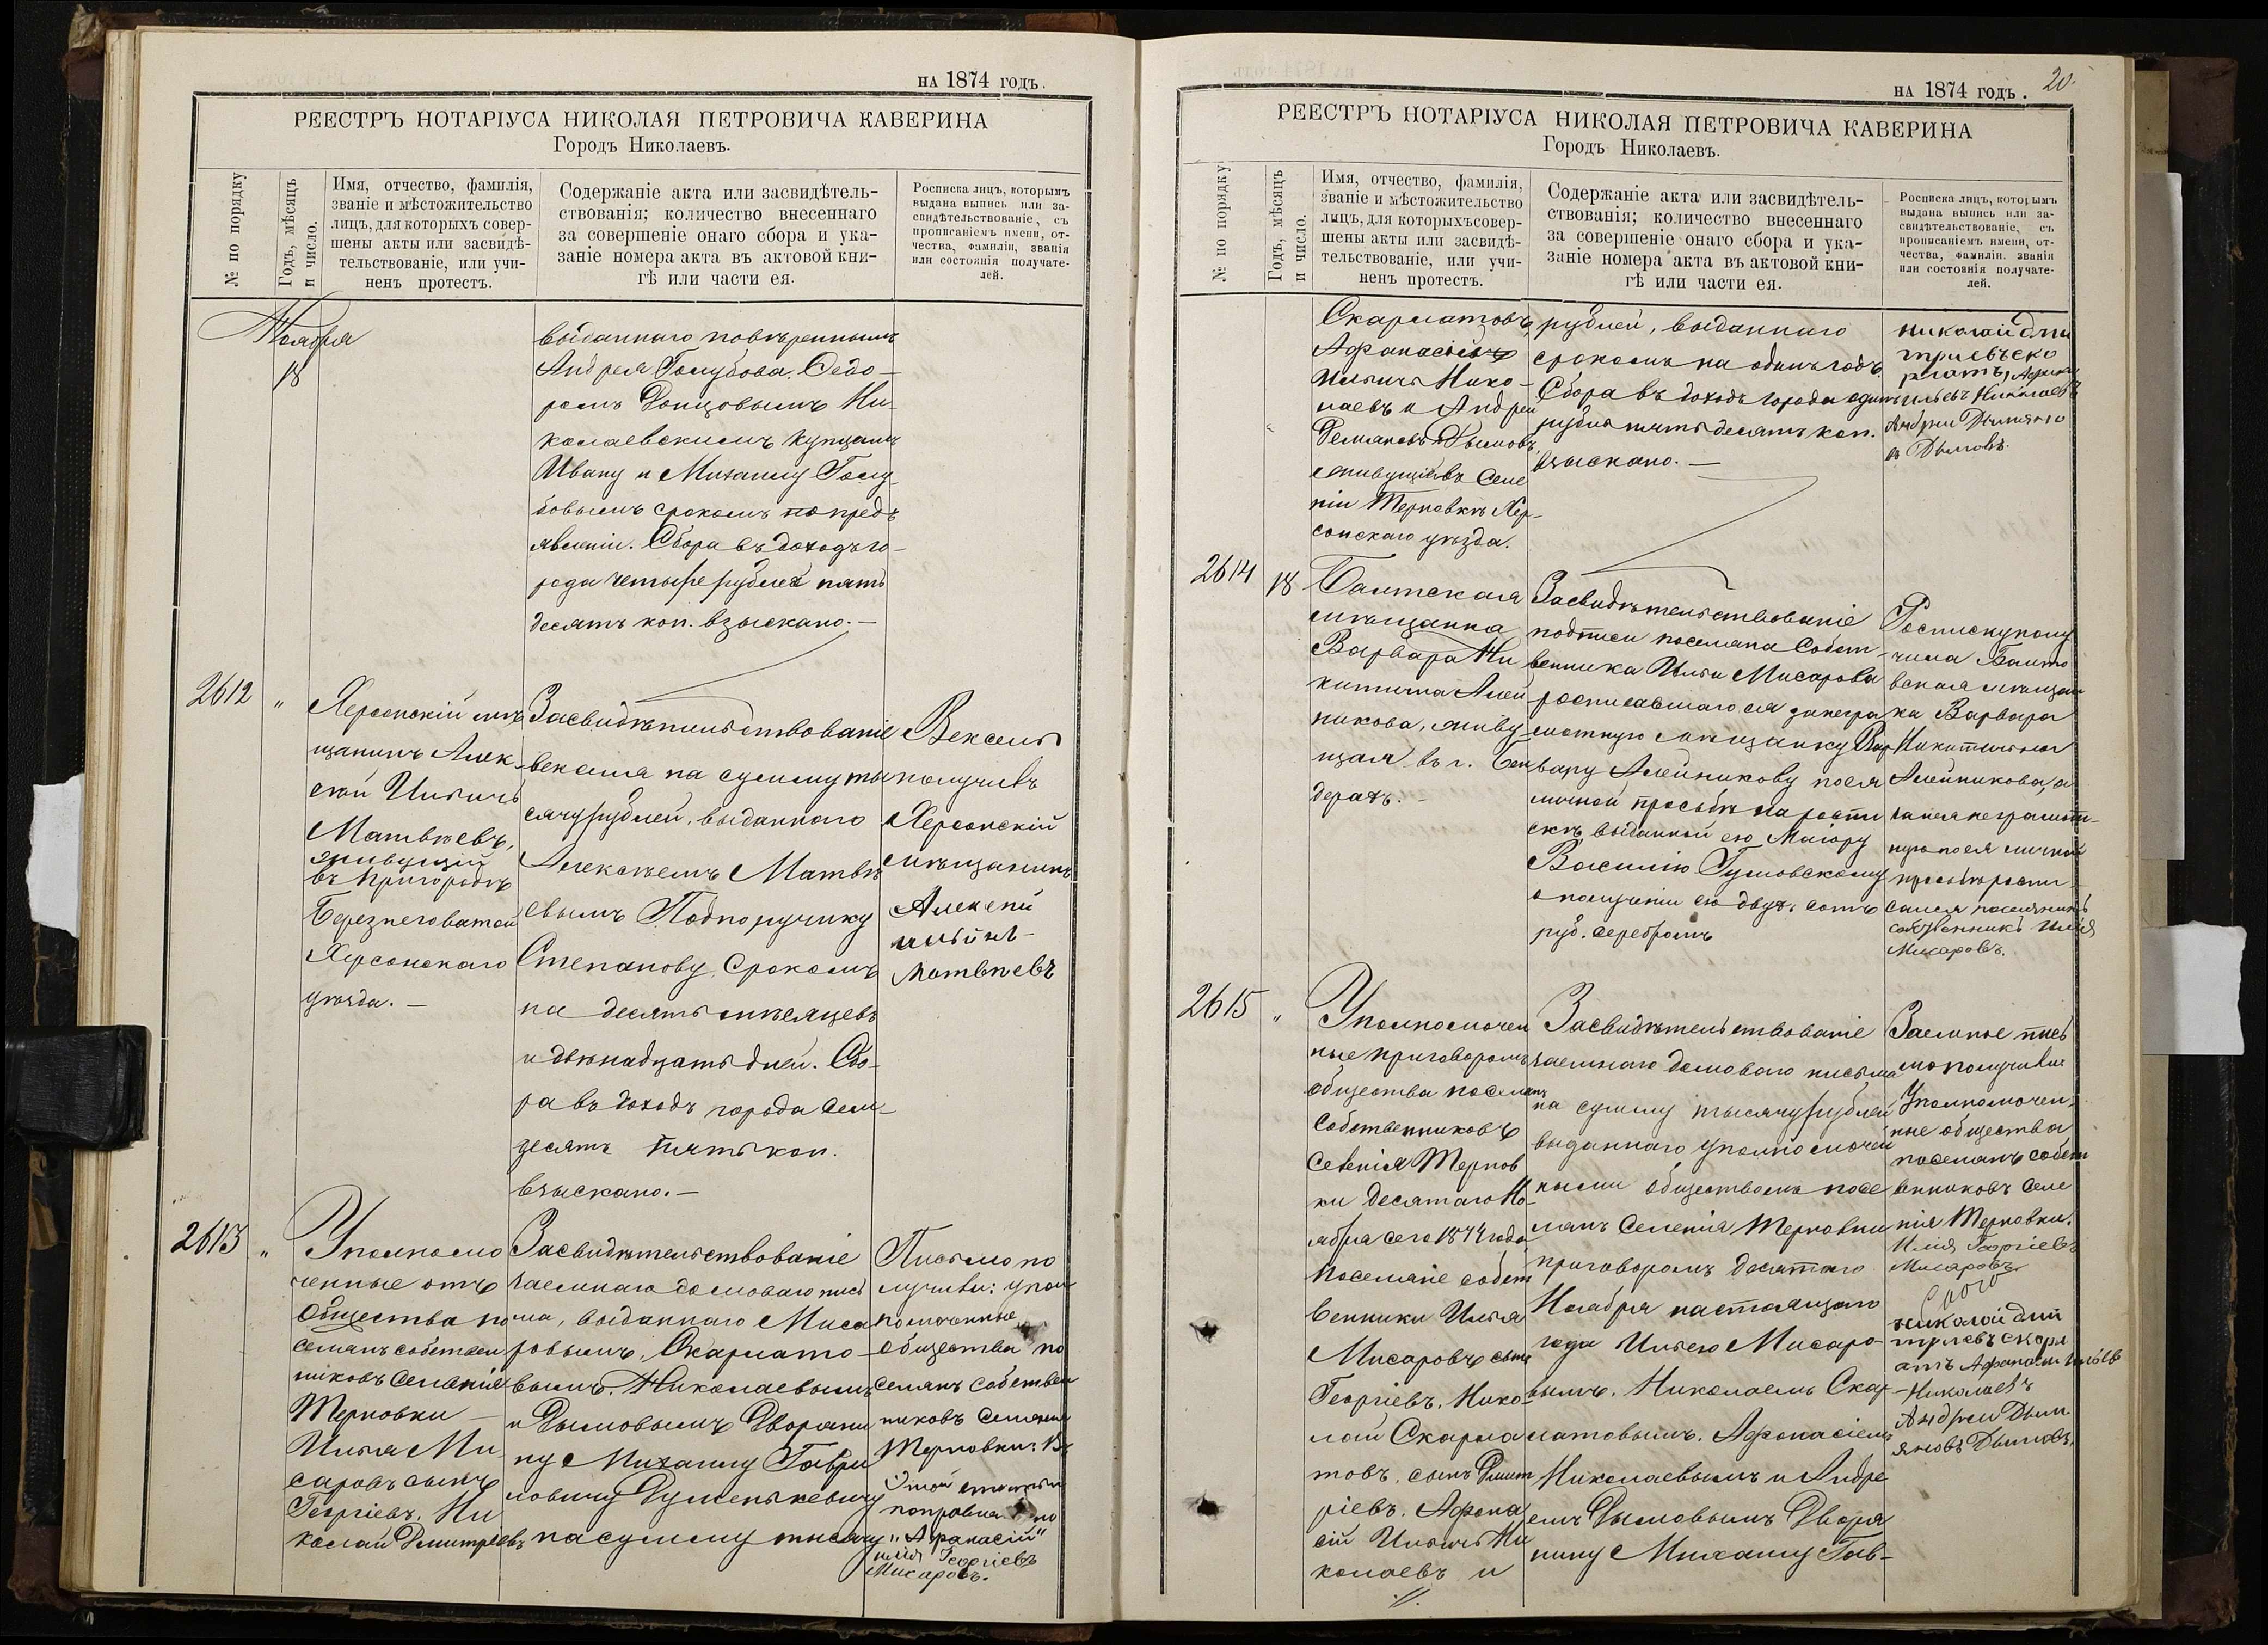 на 1874 годъ.
РЕЕСТРЪ НОТАРІУСА НИКОЛАЯ ПЕТРОВИЧА КАВЕРИНА
Городъ Николаевъ.
№ по порядку
Годъ, мѣсяцъ
и число.
Имя, отчество, фамилія,
званіе и мѣстожительство
лицъ, для которыхъ совер-
шены акты или засвидѣ-
тельствованіе, или учи-
ненъ протестъ.
Содержаніе акта или засвидѣтель-
ствованія; количество внесеннаго
за совершеніе онаго сбора и ука-
заніе номера акта въ актовой кни-
гѣ или части ея.
Росписка лицъ, которымъ
выдана выпись или за-
свидѣтельствованіе, съ
прописаніемъ имени, от-
чества, фамиліи, званія
или состоянія получате-
лей.
Ноября
18
выданнаго повѣреннымъ
Андрея Голубова. Седо-
ромъ Донцовымъ Ни-
колаевскимъ купцамъ
Ивану и Михаилу Голу-
бовымъ срокомъ по предъ
явленіи. Сбора въ доходъ го-
рода четыре рублей пять
десятъ коп. взыскано.—
2612
"
Херсонскій мѣ
щанинъ Алек-
сѣй Ильичъ
Матвѣевъ,
живущій
въ пригородѣ
Березнеговатой
Херсонскаго
уѣзда.—
Засвидѣтельствованіе
векселя на сумму ты
сячу рублей, выданнаго
Алексѣемъ Матвѣ
евымъ Подпоручику
Степанову, срокомъ
на десять мѣсяцевъ
и двѣнадцать дней. Сбо-
ра въ доходъ города сем-
десятъ пять коп.
взыскано.—
Вексель
получивъ
Херсонскій
мѣщанинъ
Алексѣй
Матвѣевъ
2613
"
Уполномо
ченные отъ
Общества по
селянъ собствен
никовъ Селенія
Терновки—
Илья Ми-
саровъ сынъ
Георгіевъ, Ни
колай Дмитріевъ
Засвидѣтельствованіе
заемнаго домоваго пись
ма, выданнаго Миса
ровымъ, Скарлато-
вымъ, Николаевымъ
и Дымовымъ Дворяни
ну Михаилу Гаври
ловичу Думенькевичу
на сумму тысячу
Письмо по
лучивъ: упол
номоченные
общества по
селянъ собствен
никовъ Селенія
Терновки: Въ
этой
поправка по
"Афанасій"
Илія Георгіевъ
Мисаровъ.
на 1874 годъ.
20.
РЕЕСТРЪ НОТАРІУСА НИКОЛАЯ ПЕТРОВИЧА КАВЕРИНА
Городъ Николаевъ.
№ по порядку
Годъ, мѣсяцъ
и число.
Имя, отчество, фамилія,
званіе и мѣстожительство
лицъ, для которыхъ совер-
шены акты или засвидѣ-
тельствованіе, или учи-
ненъ протестъ.
Содержаніе акта или засвидѣтель-
ствованія; количество внесеннаго
за совершеніе онаго сбора и ука-
заніе номера акта въ актовой кни-
гѣ или части ея.
Росписка лицъ, которымъ
выдана выпись или за-
свидѣтельствованіе, съ
прописаніемъ имени, от-
чества, фамиліи, званія
или состоянія получате-
лей.
Скарлатовъ,
Афанасій
Ильичъ Нико-
лаевъ и Андрей
Демьяновъ Дымовъ,
живущіе въ Селе
ніи Терновкѣ Хер-
сонскаго уѣзда.
рублей, выданнаго
срокомъ на одинъ годъ.
Сбора въ доходъ города одинъ
рубль пять десятъ коп.
взыскано.—
николай дми
триевъ ска
рлатъ,
ильевъ Николаевъ
Андрей Демьяно
въ Дымовъ.
2614
18
Балтская
мѣщанка
Варвара Ни
китична Алей
никова, живу
щая въ г. Бен
дерахъ.—
Засвидѣтельствованіе
подписи поселяна Собст-
венника Ильи Мисарова
росписавшагося за негра
мотную мѣщанку Вар
вару Алейникову по ея
личной просьбѣ на роспи
скѣ, выданной ею Маіору
Василію Гумовскому
о полученіи ею двухъ сотъ
руб. серебромъ
Росписку полу
чила Балто
вская мѣщан
ка Варвара
Никитична
Алейникова, а
за нея неграмот-
ную по ея личной
просьбѣ роспи-
сался поселянинъ
собственникъ Илія
Мисаровъ.
2615
"
Уполномочен
ные приговоромъ
общества поселянъ
Собственниковъ
Селенія Тернов
ки десятаго Но-
ября сего 1874 года
Поселяне собст
венники Илья
Мисаровъ сынъ
Георгіевъ, Нико-
лай Скарла
товъ, сынъ Дмит
ріевъ, Афана
сій Ильичъ Ни
колаевъ и
Засвидѣтельствованіе
заемнаго домоваго письма
на сумму тысячу рублей
выданнаго уполномочен
ными обществомъ посе
лянъ Селенія Терновки
приговоромъ десятаго
Ноября настоящаго
года Ильею Мисаро-
вымъ, Николаемъ Скар-
латовымъ, Афанасіемъ
Николаевымъ и Андре
емъ Дымовымъ Дворя
нину Михаилу Гав-
Заемное пись
мо получили
Уполномочен-
ные общества
поселянъ собст
венниковъ Селе
нія Терновки.
Илія Георгіевъ
Мисаровъ
николай дми
триевъ скарл
атъ Афанасій ильевъ
Николаевъ
Андреи Демь
яновъ Дымовъ.